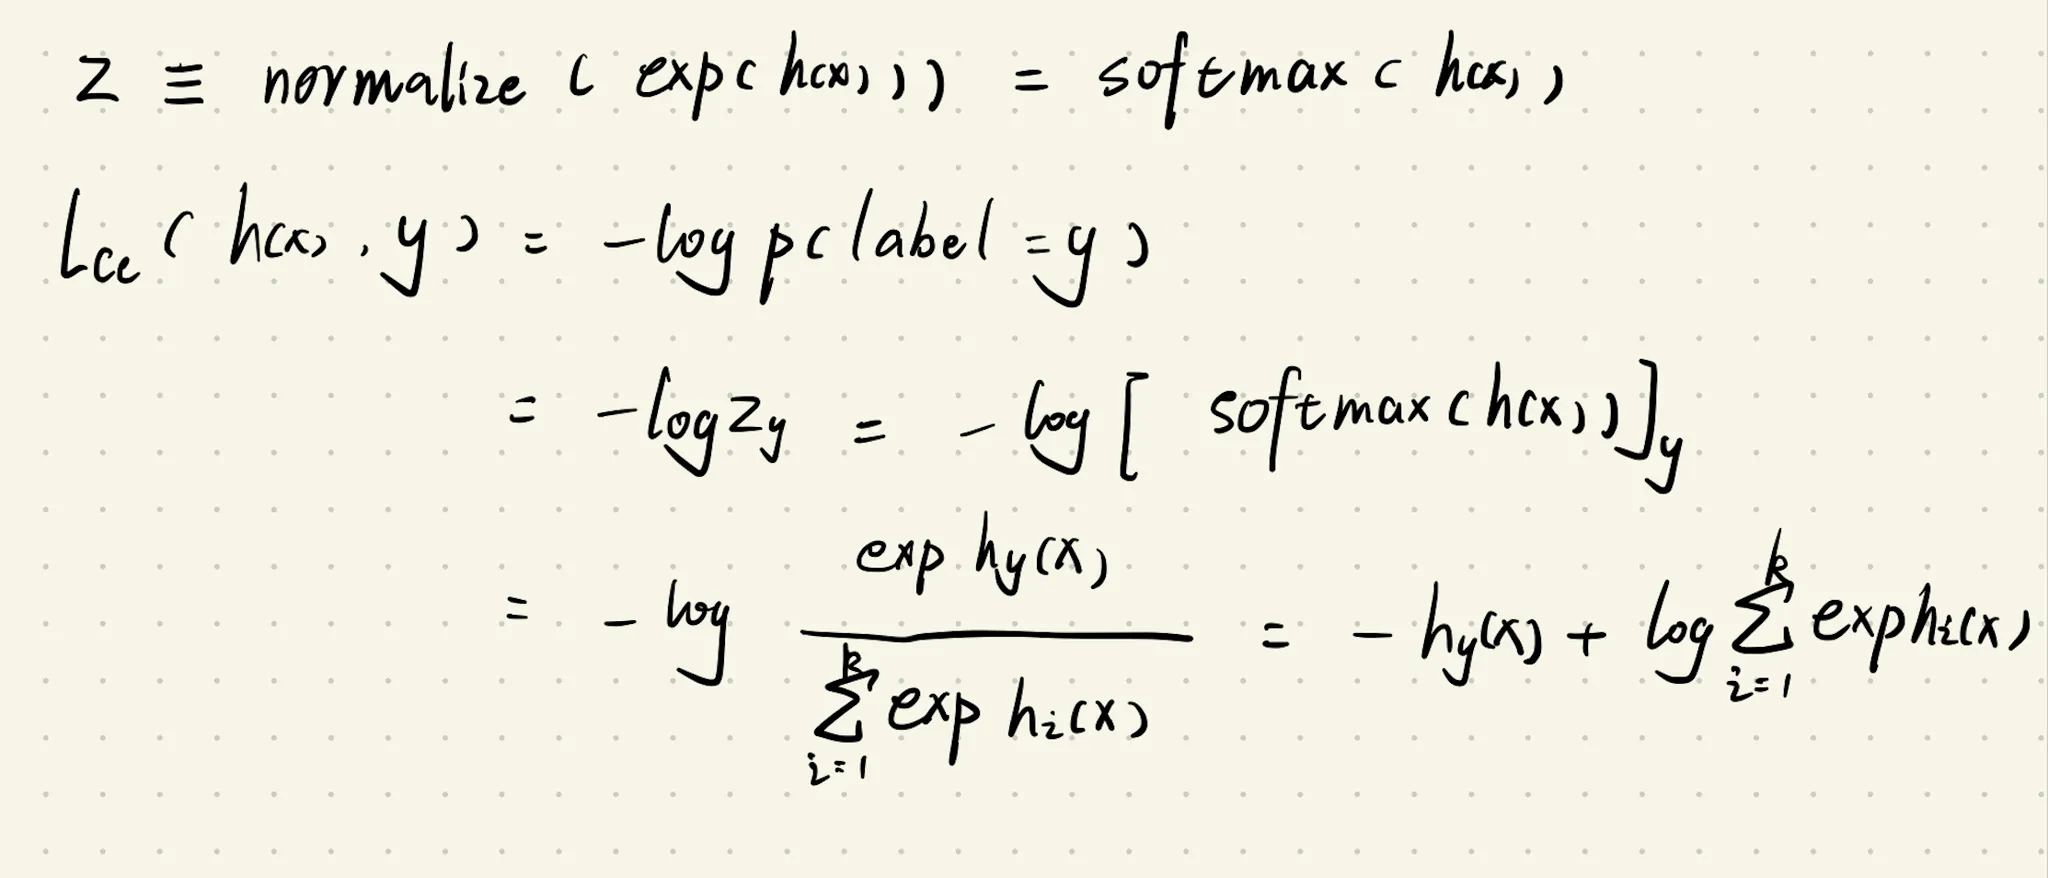 z ≡ normalize (exp(h(x))) = softmax(h(x))
L_ce(h(x), y) = -log p(label = y)
= -log z_y = -log [softmax(h(x))]_y
= -log \frac{exp h_y(x)}{\sum_{i=1}^{k} exp h_i(x)} = -h_y(x) + log \sum_{i=1}^{k} exp h_i(x)